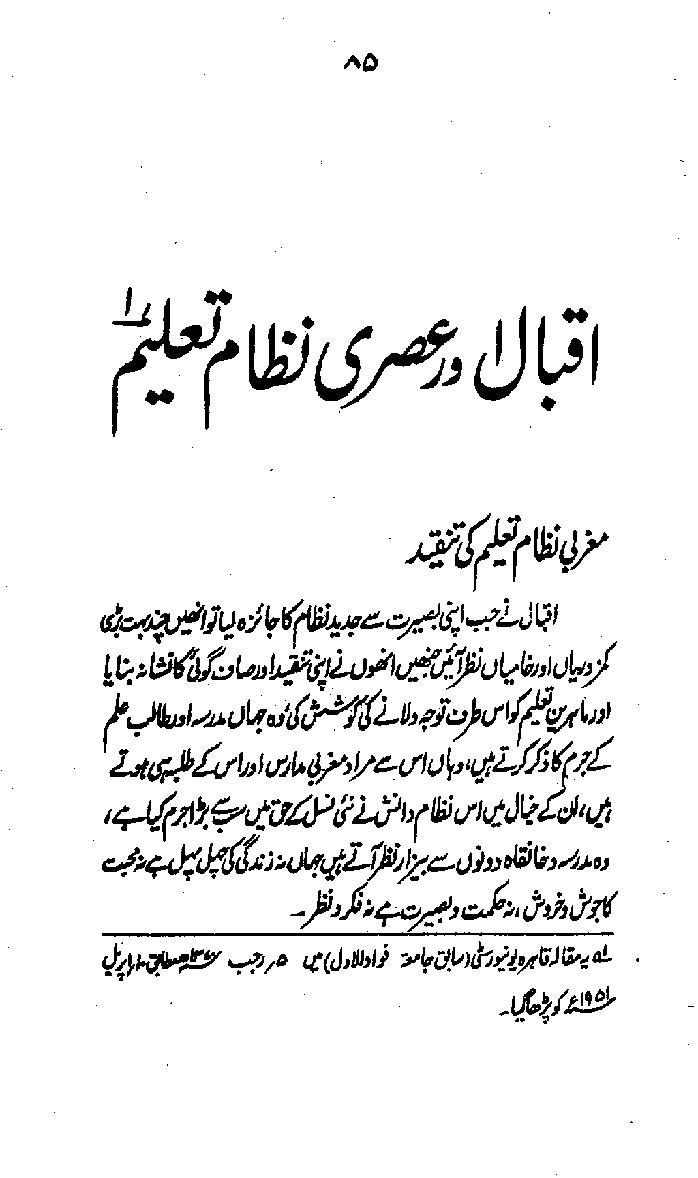 ۸۵
اقبال اور عصری نظام تعلیم ۱؎
مغربی نظام تعلیم کی تنقید
اقبال نے جب اپنی بصیرت سے جدید نظام کا جائزہ لیا تو انھیں چند بہت بڑی
کمزوریاں اور خامیاں نظر آئیں جنھیں انھوں نے اپنی تنقید اور صاف گوئی کا نشانہ بنایا
اور ماہرین تعلیم کو اس طرف توجہ دلانے کی کوشش کی، وہ جہاں مدرسہ اور طالب علم
کے جرم کا ذکر کرتے ہیں، وہاں اس سے مراد مغربی مدارس اور اس کے طلبہ ہی ہوتے
ہیں، ان کے خیال میں اس نظام دانش نے نئی نسل کے حق میں سب سے بڑا جرم کیا ہے،
وہ مدرسہ و خانقاہ دونوں سے بیزار نظر آتے ہیں جہاں نہ زندگی کی چہل پہل ہے نہ محبت
کا جوش و خروش، نہ حکمت و بصیرت ہے نہ فکر و نظر۔
۱؎ یہ مقالہ قاہرہ یونیورسٹی (سابق جامعۃ فواد الاول) میں ۵؍ رجب ۱۳۷۰ھ مطابق ۱۰؍ اپریل
۱۹۵۱ء کو پڑھا گیا۔